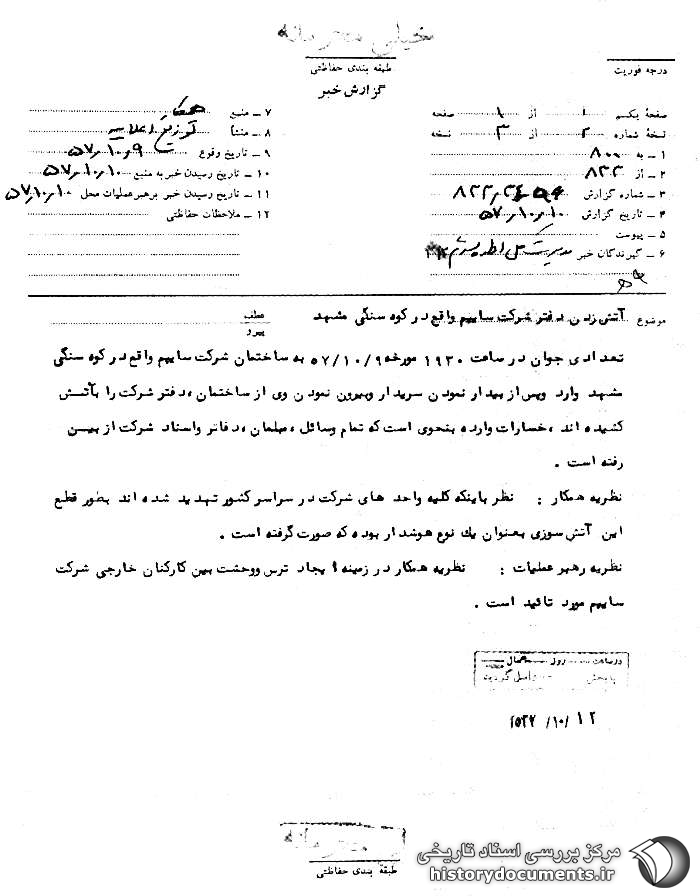 خیلی محرمانه
طبقه بندی حفاظتی
درجه فوریت
گزارش خبر
صفحهٔ یکم ۱ از ۱ صفحه
نسخهٔ شماره ۲ از ۳ نسخه
۱ ــ به ۸۰۰
۲ ــ از ۸۲۲
۳ ــ شماره گزارش
۴ ــ تاریخ گزارش ۵۷٫۱۰٫۱۰
۵ ــ پیوست
۶ ــ گیرندگان خبر مدیریت کل اداره سوم
۷ ــ منبع همکار
۸ ــ منشأ
۹ ــ تاریخ وقوع ۵۷٫۱۰٫۹
۱۰ ــ تاریخ رسیدن خبر به منبع ۵۷٫۱۰٫۱۰
۱۱ ــ تاریخ رسیدن خبر برهبرعملیات محل ۵۷٫۱۰٫۱۰
۱۲ ــ ملاحظات حفاظتی
موضوع آتش زدن دفتر شرکت سایپم واقع در کوه سنگی مشهد
عطف
پیرو
تعدادی جوان در ساعت ۱۹۳۰ مورخه ۵۷/۱۰/۹ به ساختمان شرکت سایپم واقع در کوه سنگی
مشهد وارد وپس از بیدار نمودن سریدار وبیرون نمودن وی از ساختمان ، دفتر شرکت را بآتش
کشیده اند ، خسارات وارده بنحوی است که تمام وسائل ، مبلمان ، دفاتر واسناد شرکت از بین
رفته است .
نظریه همکار : نظر باینکه کلیه واحد های شرکت در سراسر کشور تهدید شده اند بطور قطع
این آتش سوزی بعنوان یك نوع هوشدار بوده که صورت گرفته است .
نظریه رهبر عملیات : نظریه همکار در زمینه ایجاد ترس ووحشت بین کارکنان خارجی شرکت
سایپم مورد تائید است .
در ساعت روز
بابخش واصل گردید
۱۲ /۱۰/ ۲۵۳۷
محرمانه
طبقهٔ بندی حفاظتی
مرکز بررسی اسناد تاریخی
historydocuments.ir